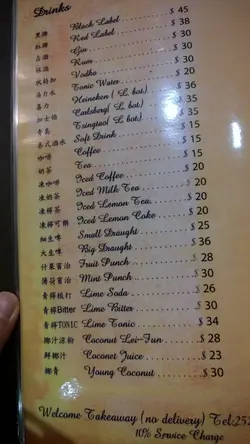 Drinks
黑牌 Black Label $ 45
紅牌 Red Label $ 38
占酒 Gin $ 30
林酒 Rum $ 30
伏特加 Vodka $ 30
湯力水 Tonic Water $ 20
喜力 Heineken ( L. bot) $ 36
加士伯 Carlsberg( L. bot) $ 35
青島 Tsingtao( L. bot) $ 35
各式汽水 Soft Drink $ 15
咖啡 Coffee $ 15
奶茶 Tea $ 15
凍咖啡 Iced Coffee $ 20
凍奶茶 Iced Milk Tea $ 20
凍檸茶 Iced Lemon Tea $ 20
凍檸可樂 Iced Lemon Coke $ 20
細生啤 Small Draught $ 25
大生啤 Big Draught $ 36
什果賓治 Fruit Punch $ 28
薄荷賓治 Mint Punch $ 30
青檸梳打 Lime Soda $ 26
青檸Bitter Lime Bitter $ 30
青檸TONIC Lime Tonic $ 34
椰汁涼粉 Coconut Lei-Fun $ 28
鮮椰汁 Coconet Juice $ 23
椰青 Young Coconut $ 30
Welcome Takeaway (no delivery) Tel:253
10% Service Charge